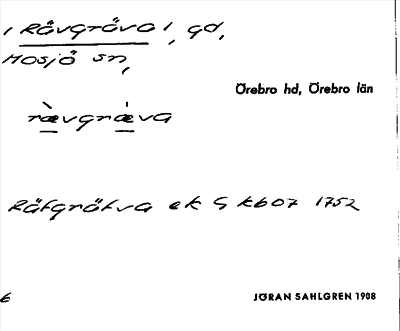 1 Rävgräva 1, gd,
Mosjö sn,
Örebro hd, Örebro län
ràvgráva
Räfgräfva ek G Kb07 1752
6
JÖRAN SAHLGREN 1908